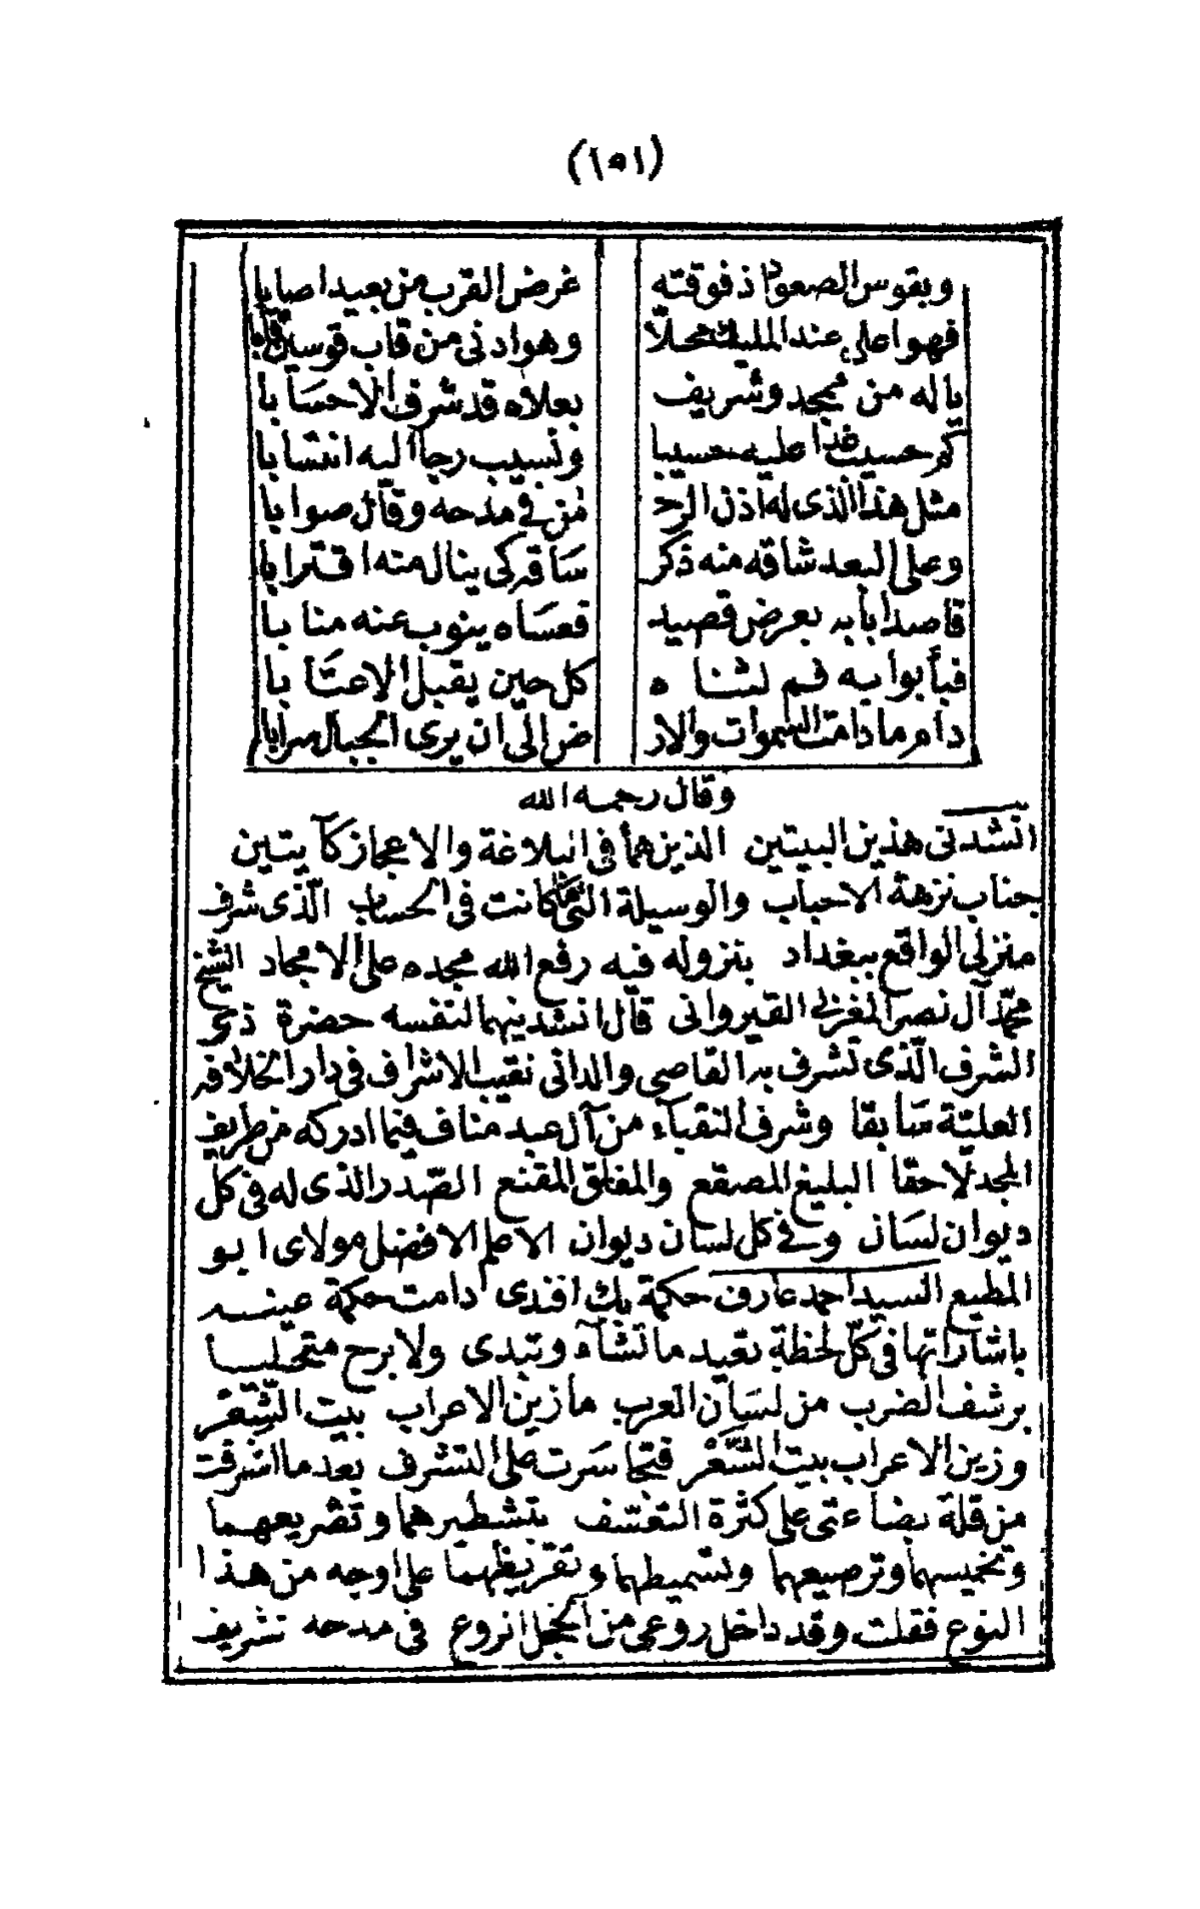 (١٥١)
وبقوس الصعود اذ فوقته غرض القرب من بعيد اصابا
فهو اعلى عند المليك محلاّ وهو ادنى من قاب قوسين قابا
ياله من ممجد وشريف بعلاه قد شرف الاحسابا
كم حسيب غدا عليه حسيبا ونسيب رجا اليه انتسابا
مثل هذا الذى له اذن الرحـ ـمن فى مدحه وقال صوابا
وعلى البعد شاقه منه ذكر ساقه كى ينال منه اقترابا
قاصدا بابه بعرض قصيد فعساه ينوب عنه منابا
فبأبوابه فم لثناه كل حين يقبل الاعتابا
دام مادامت السموات والار ض الى ان يرى الجبال سرابا
وقال رحمه الله
انشدنى هذين البيتين الذين هما فى البلاغة والاعجاز كآيتين
جناب نزهة الاحباب والوسيلة التى ما كانت فى الحساب الّذى شرف
منزلى الواقع ببغداد بنزوله فيه رفع الله مجده على الامجاد الشيخ
محمّد آل نصر المغربى القيروانى قال انشدنيهما لنفسه حضرة ذى
الشرف الّذى تشرف به القاصى والدانى نقيب الاشراف فى دار الخلافه
العليّة سابقا وشرف النقباء من آل عبد مناف فيما ادركه من طريف
المجد لاحقا البليغ المصقع والمفلق المقنع الصّدر الذى له فى كل
ديوان لسان وفى كل لسان ديوان الاعلم الافضل مولاى ابو
المطيع السيد احمد عارف حكمة بك افندى دامت حكمة عينيه
باشاراتها فى كلّ لحظة تعيد ما تشآء وتبدى ولا برح متحليا
برشف الضرب من لسان العرب ما زين الاعراب بيت الشّعر
وزين الاعراب بيت الشّعر فتجاسرت على التشرف بعد ما اشرفت
من قلة بضاعتى على كثرة التعسّف بتشطيرهما وتصريعهما
وتخميسهما وترصيعهما وتسميطهما وتقريظهما على اوجه من هذا
النوع فقلت وقد داخل روعى من الخجل انروع فى مدحه تشريف